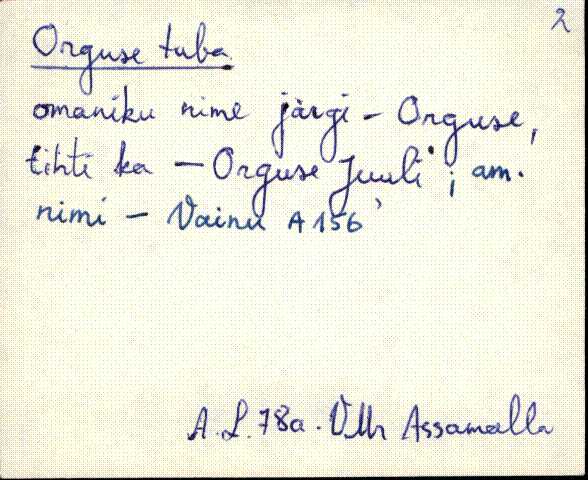 2
Orguse tuba
omaniku nime järgi – Orguse,
tihti ka – Orguse Juuli ; am.
nimi – Vainu A 156
A. L. 78a. VMr Assamalla